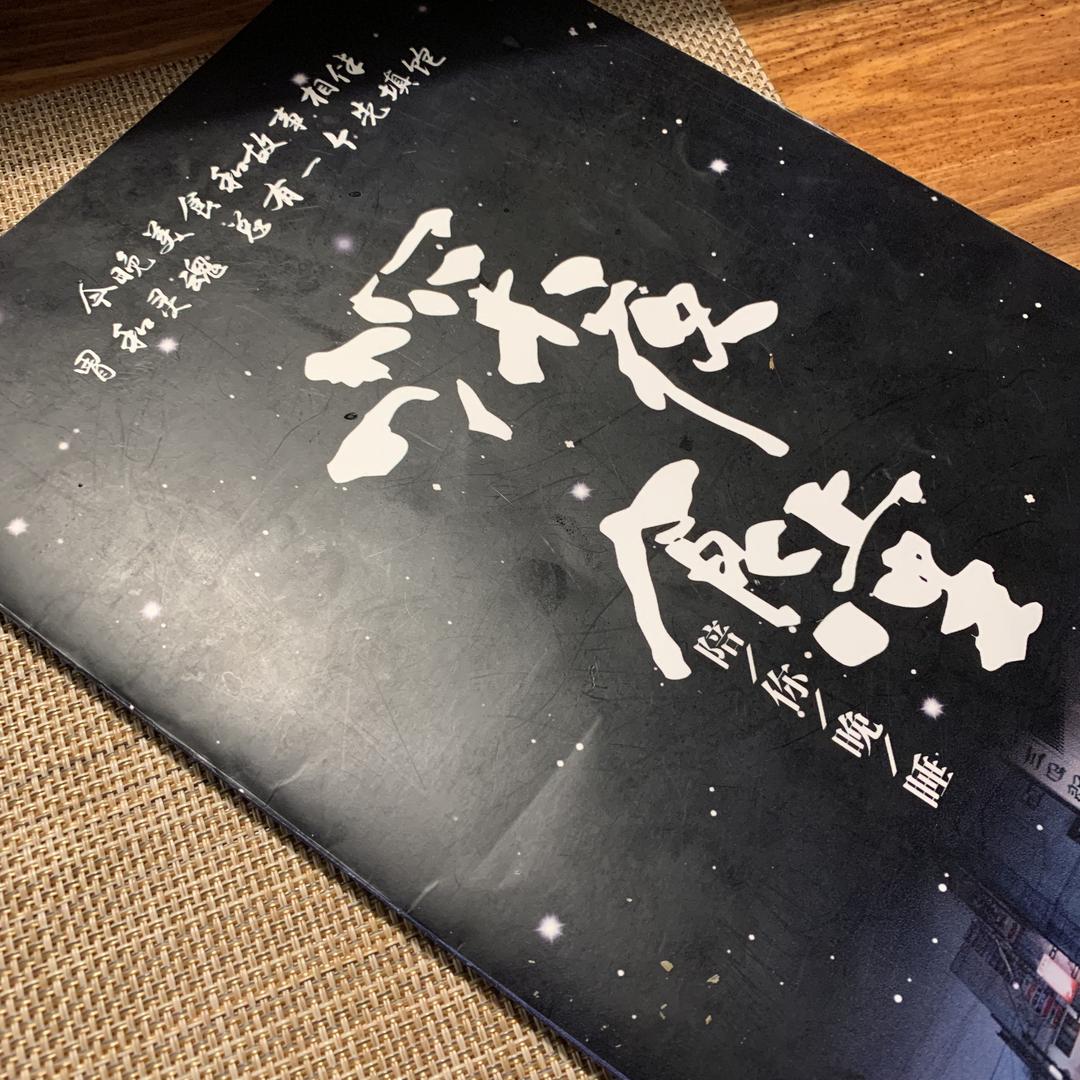 今晚美食和故事相伴
胃和灵魂 总有一个先填饱
深夜
食堂
陪/你/晚/睡